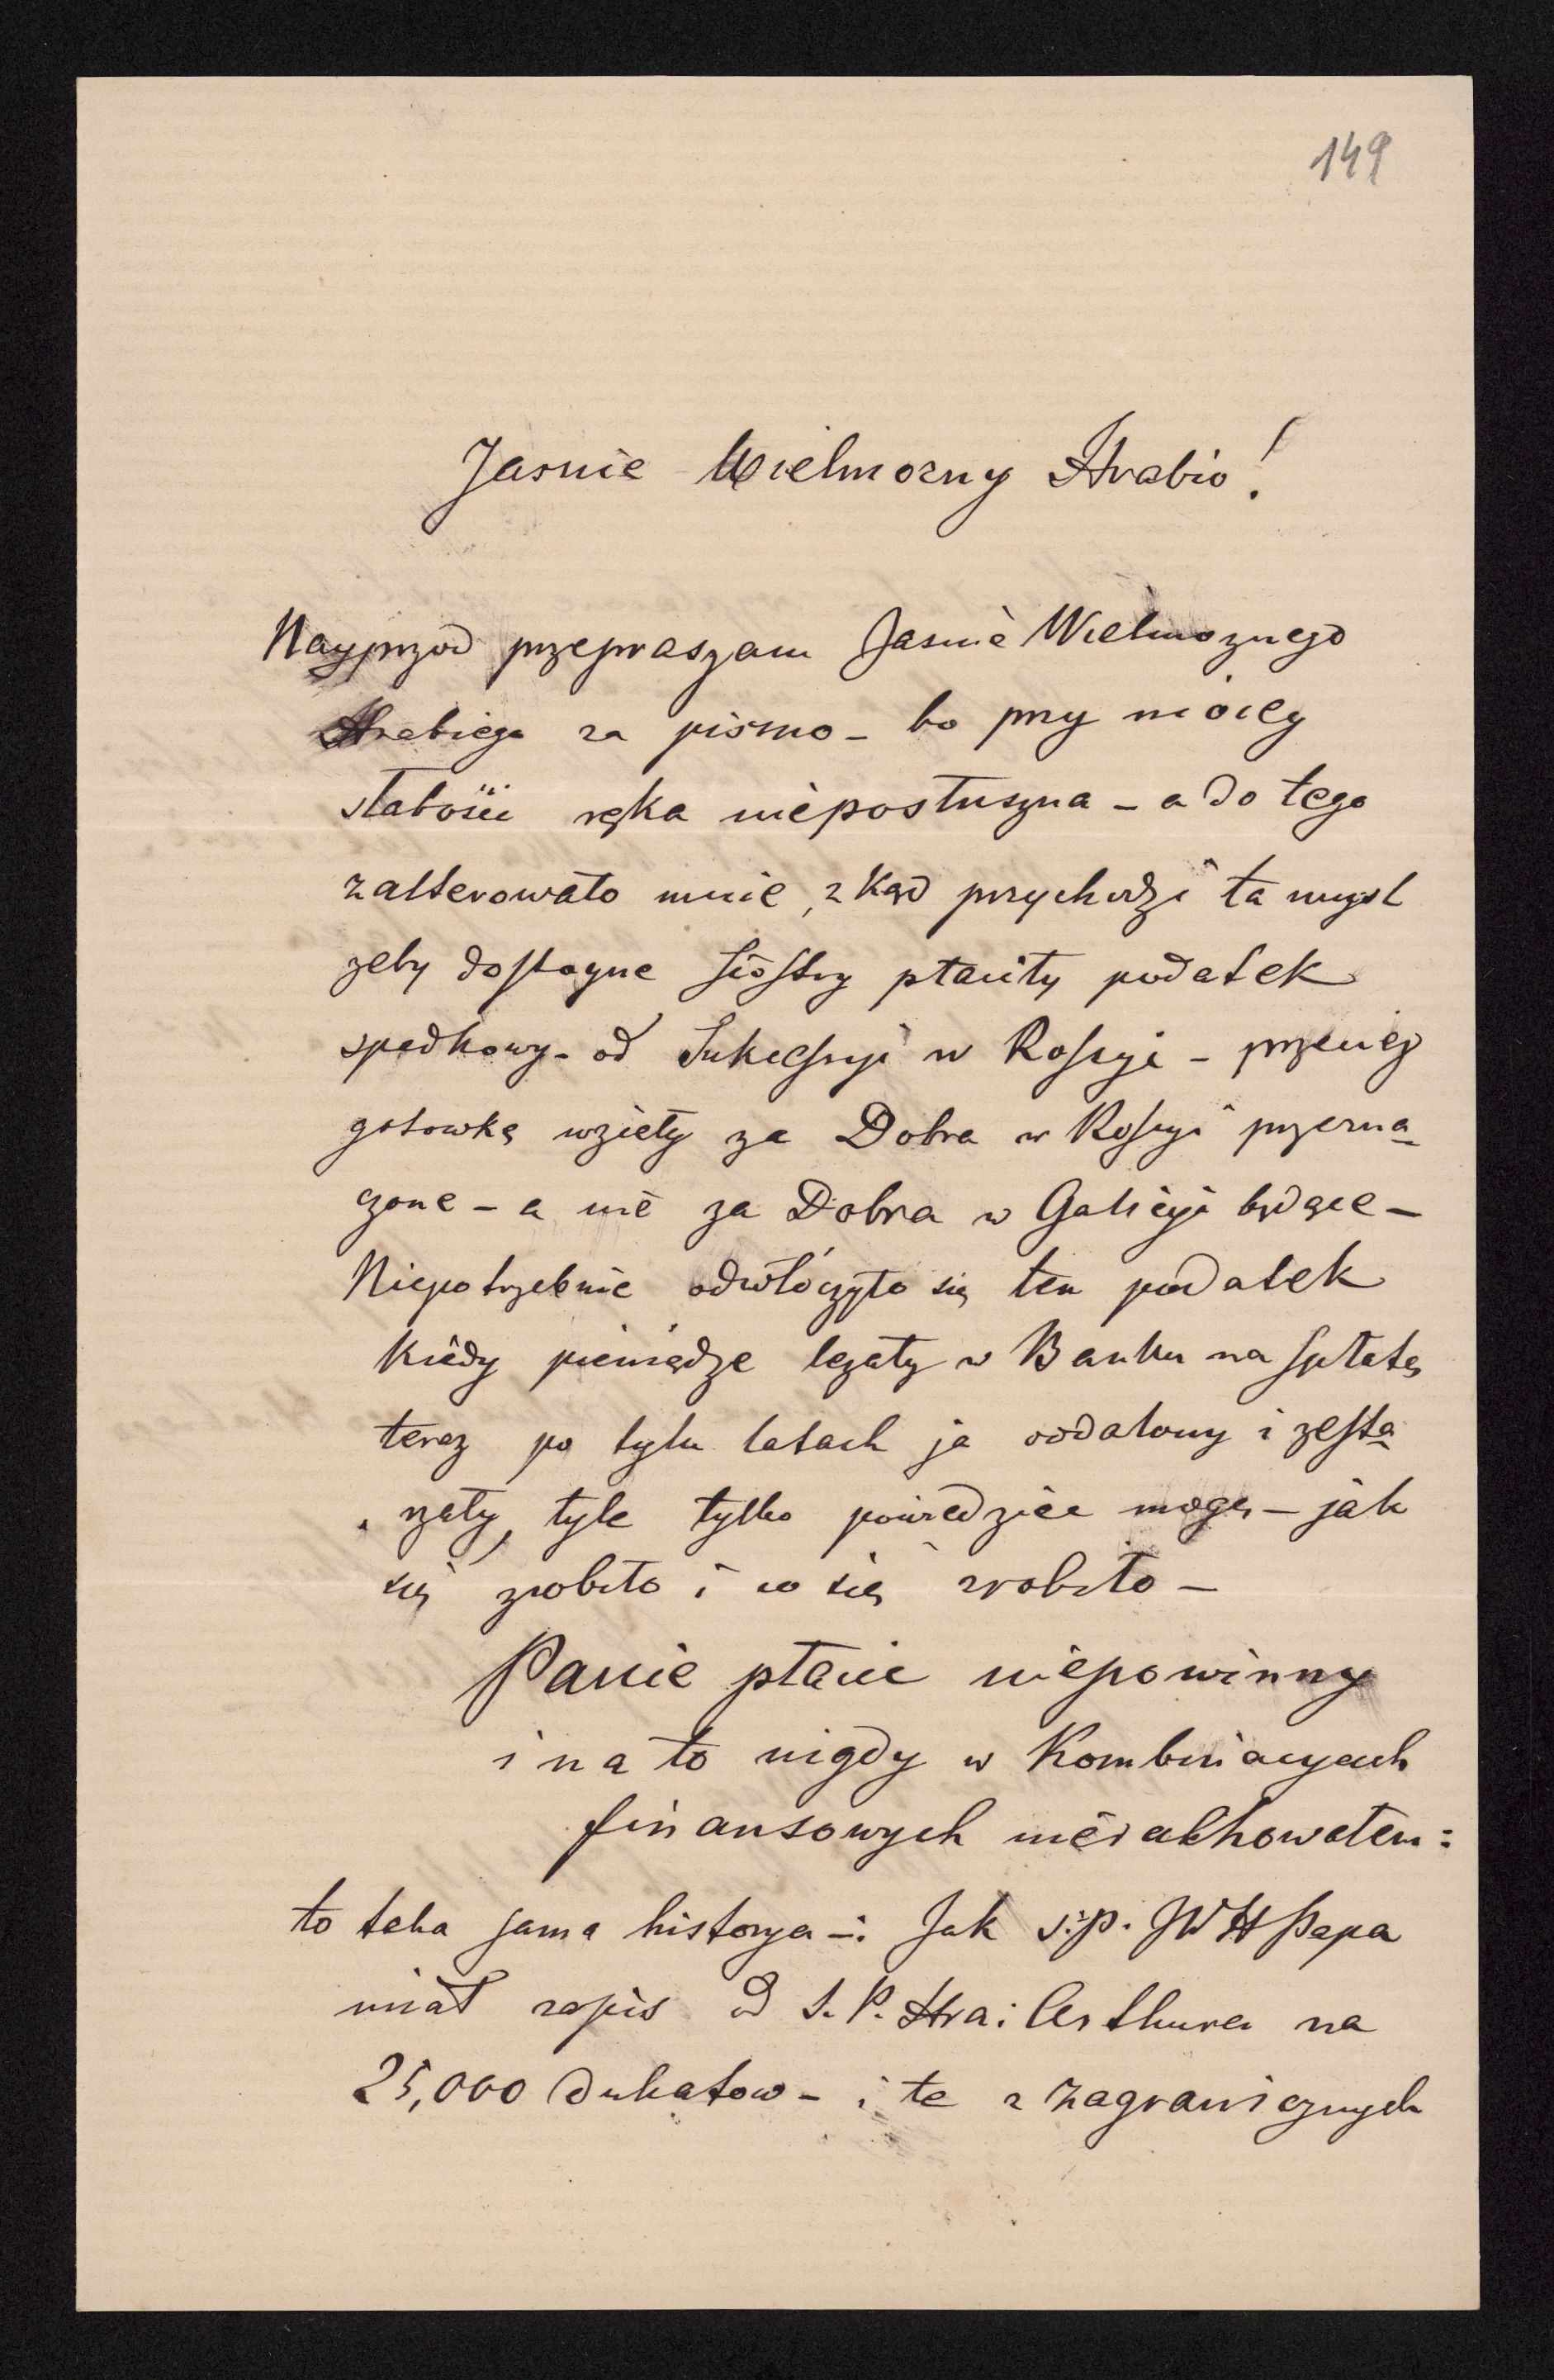 149
Jasnie Wielmozny Hrabio!
Nayprzod przepraszam Jasnie Wielmoznego
Hrabiego za pismo - bo przy moiey
słabości ręka nieposłuszna - a do tego
zalterowało mnie, zkąd przychodzi ta mysl
zeby dostoyne siostry płaciły podatek
spadkowy - od Sukcessyi w Rossyi -
gotowką wzięty za Dobra w Rossyi przezna=
czone - a nie za Dobra w Galicyi będące -
Niepotrzebnie odwłóczyło się ten podatek
kiedy pieniądze lezały w Banku na spłatę
teraz po tylu latach ja oddalony i zesta=
rzały, tyle tylko powiedziec mogę - jak
się zrobiło i co się zrobiło -
Panie płacic niepowinny
i na to nigdy w Kombinacyach
finansowych nierachowałem:
to taka sama historya -: Jak s.p. JWH Papa
miał zapis od S. P. Hra: Arthura na
25,000 Dukatow - i te z zagranicznych